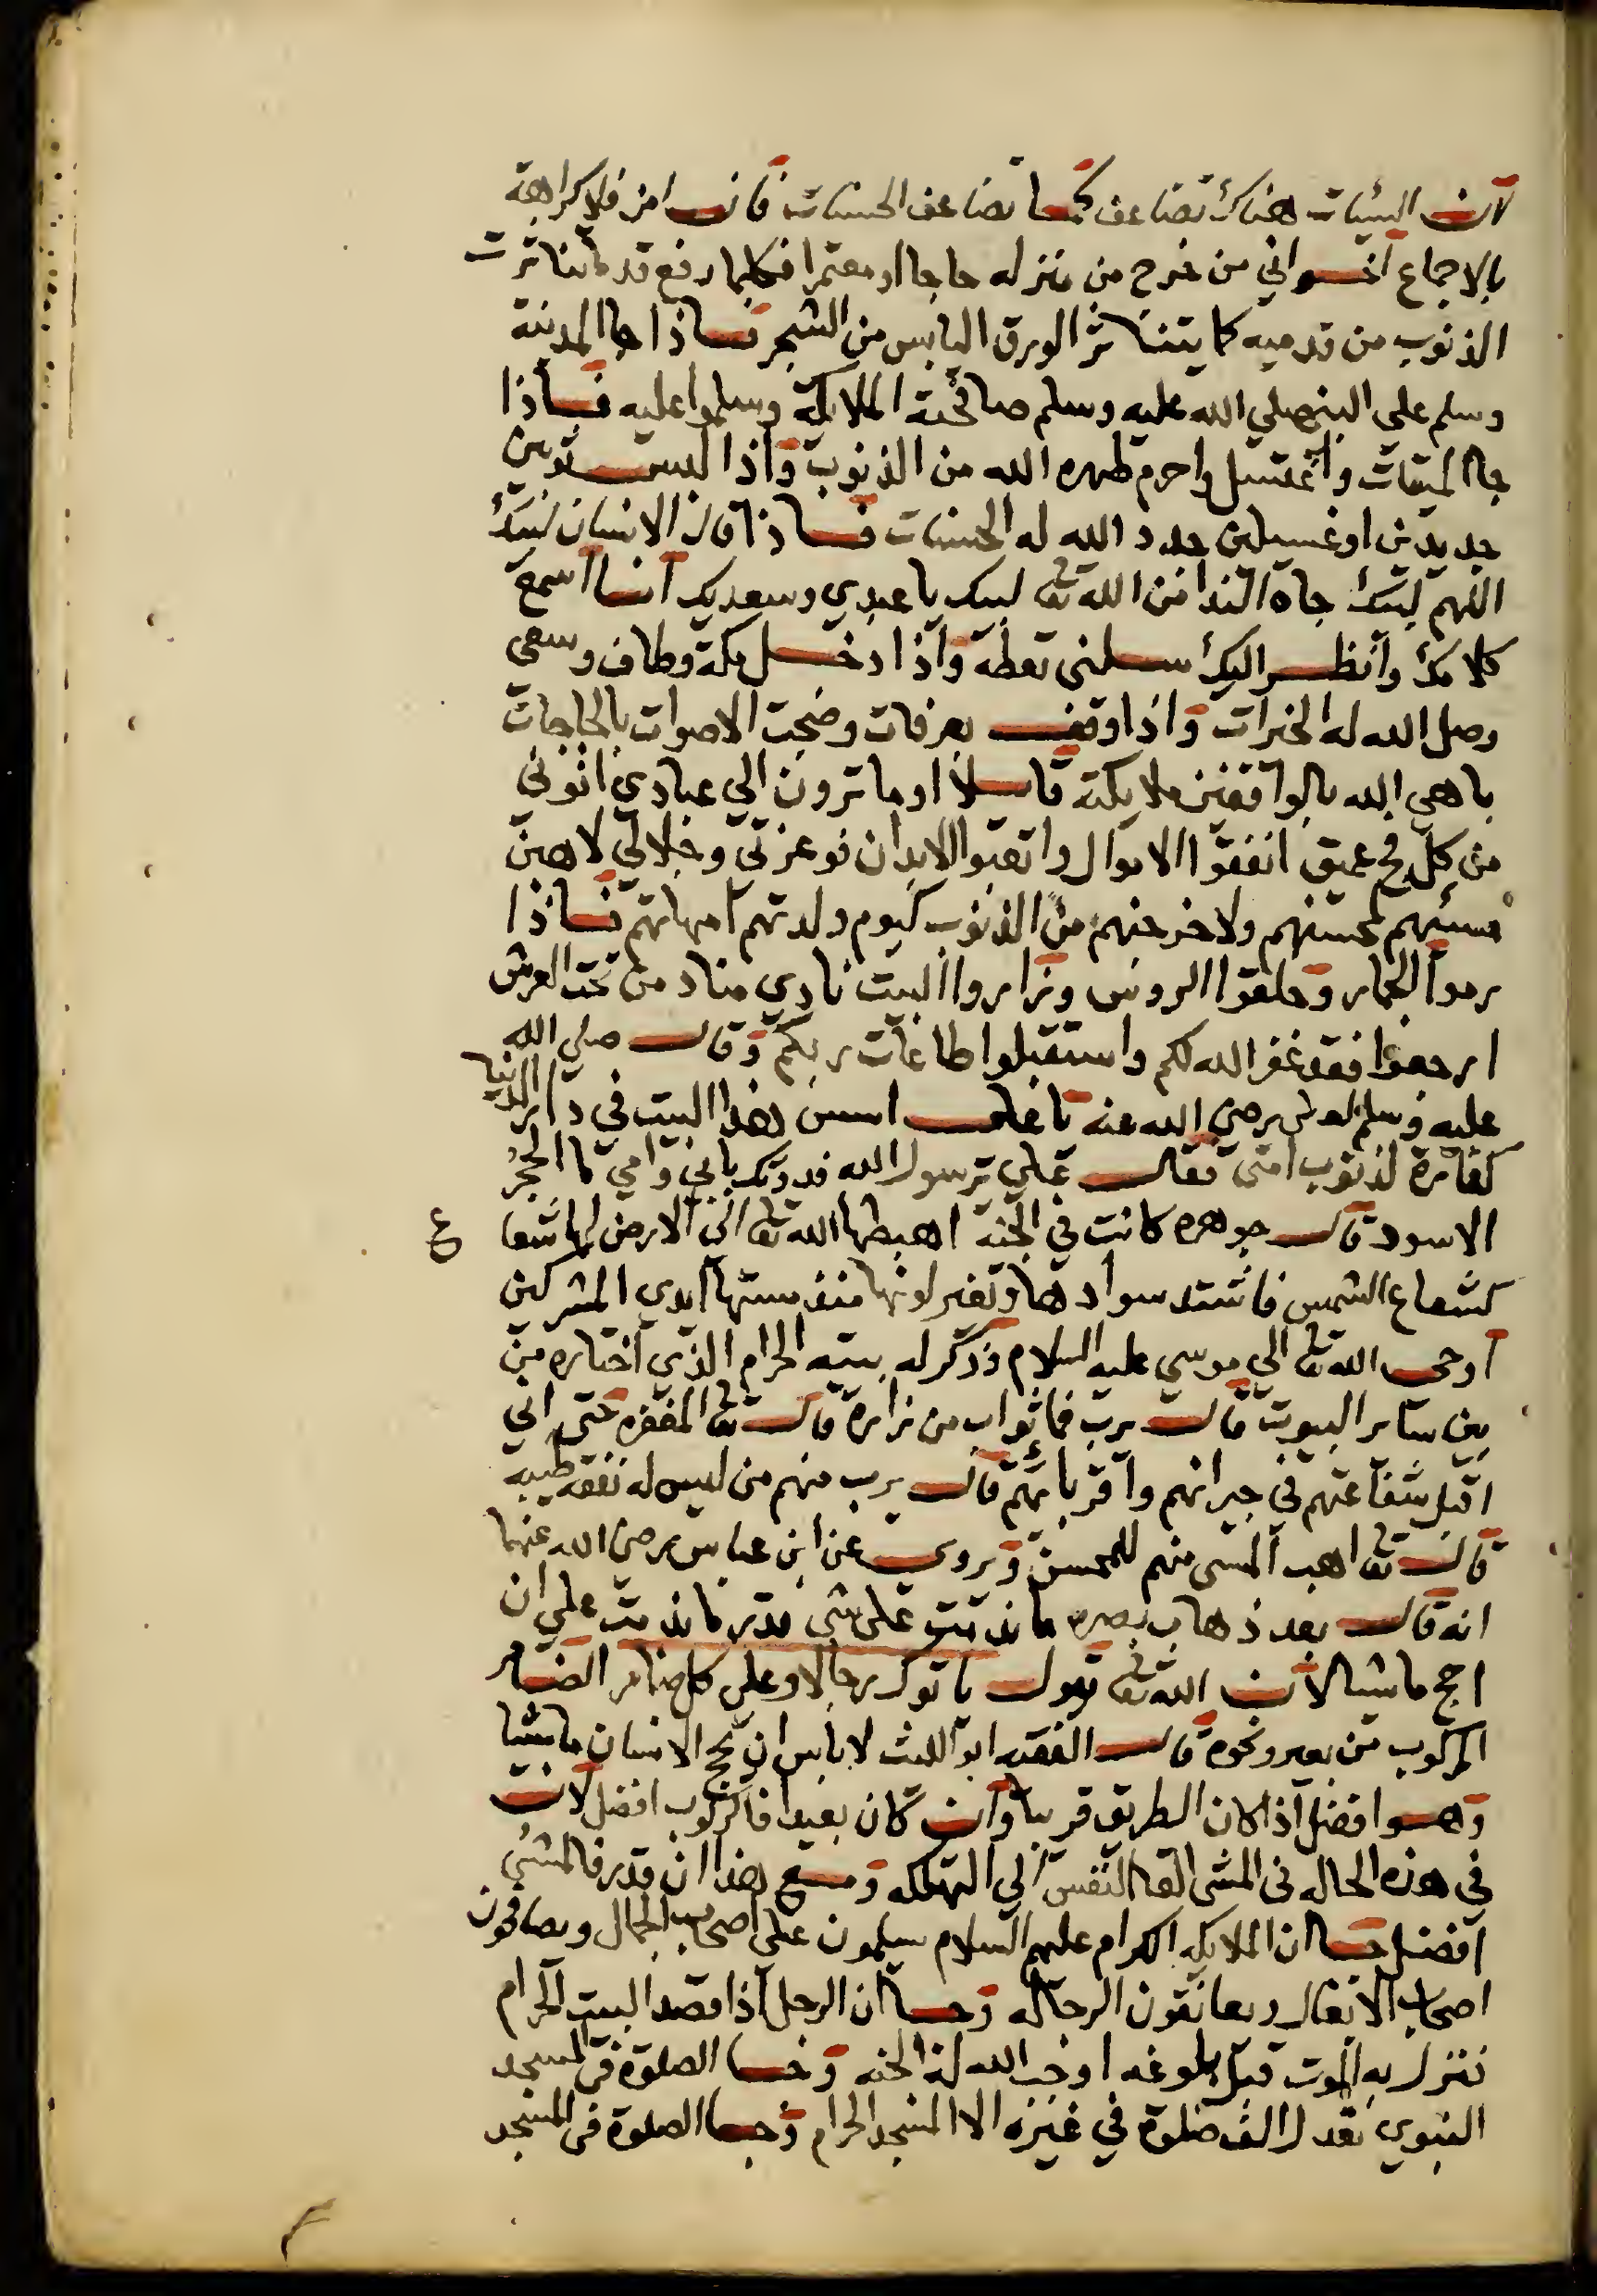 لان السئيات هناك تضاعف كما تضاعف الحسنات فان امن فلا كراهة
بالاجماع اخواني من خرج من منزله حاجا او معتمرا فكلما رفع قدما تناثرت
الذنوب من قدميه كما يتناثر الورق اليابس من الشجر فاذا جا المدينة
وسلم علي النبي صلي الله عليه وسلم صافحته الملايكة وسلموا عليه فاذا
جا الميقات واغتسل واحرم طهره الله من الذنوب واذا لبس ثوبين
جديدين او غسيلين جدد الله له الحسنات فاذا قال الانسان لبيك
اللهم لبيك جاه الندا من الله تعا لبيك يا عبدي وسعديك انا اسمع
كلامك وانظر اليك سلني تعطه واذا دخل مكة وطاف وسعي
وصل الله له الخيرات واذا وقف بعرفات وضجت الاصوات بالحاجات
باهي الله بالواقفين ملايكته قايلا اوما ترون الي عبادي اتوني
من كل فج عميق انفقوا الاموال واتعبوا الابدان فوعزتي وجلالي لاهبن
مسيئهم لمحسنهم ولاخرجنهم من الذنوب كيوم ولدتهم امهاتهم فاذا
رموا الجمار وحلقوا الروس وزاروا البيت نادي مناد من تحت العرش
ارجعوا فقد غفر الله لكم واستقبلوا طاعات ربكم وقال صلي الله
عليه وسلم لعلي رضي الله عنه يا علي اسس هذا البيت في دار الدنيا
كفارة لذنوب امتي فقال علي يرسول الله فديتك بابي وامي ما الحجر
الاسود قال جوهره كانت في الجنة اهبطها الله تعا الي الارض لها شعاع
كشعاع الشمس فاشتد سوادها وتغير لونها منذ مستها ايدي المشركين
اوحي الله تعا الي موسي عليه السلام وذكر له بيته الحرام الذي اختاره من
بين ساير البيوت قال يرب فما ثواب من زاره قال تعا المغفره حتي اني
اقبل شفاعتهم في جيرانهم واقربائهم قال يرب منهم من ليس له نفقه طيبه
قال تعا اهب المسي منهم للمحسن ويروي عن ابن عباس رضي الله عنهما
انه قال بعد ذهاب بصره ما ندمت علي شي قدر ما ندمت علي ان
احج ماشيا لان الله تعا يقول ياتوك رجالا وعلي كل ضامر الضامر
المركوب من بعير ونحوه قال الفقيه ابو الليث لا باس ان يحج الانسان ماشيا
وهو افضل اذا كان الطريق قريبا وان كان بعيدا فالركوب افضل لان
في هذه الحاله في المشي القا النفس الي التهلكه ومع هذا ان قدر فالمشي
افضل جا ان الملايكه الكرام عليهم السلام يسلمون علي اصحاب الجمال ويصافحون
اصحاب الابغال ويعانقون الرجاله وجا ان الرجل اذا قصد البيت الحرام
فنزل به الموت قبل بلوغه اوجب الله له الجنه وجا الصلوة في المسجد
النبوي تعدل الف صلوة في غيره الا المسجد الحرام وجا الصلوة في المسجد